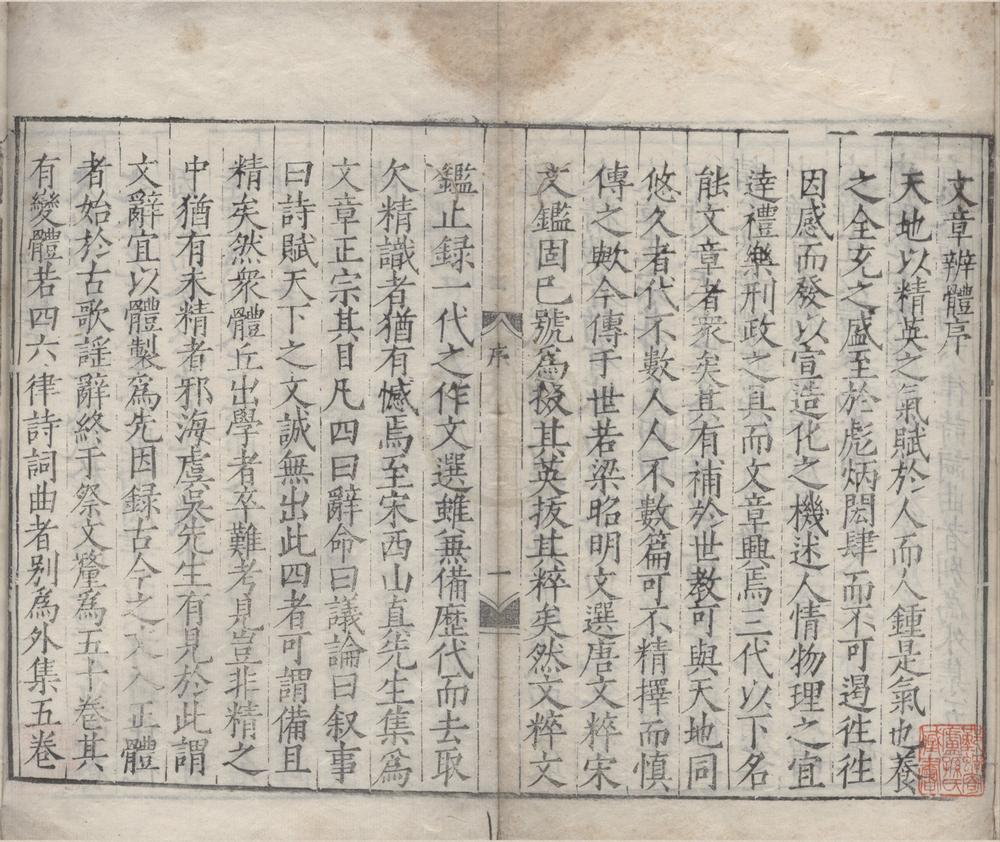 文章辨體序
天地以精英之氣賦於人而人鍾是氣也養
之全充之盛至於彪炳閎肆而不可遏往往
因感而發以宣造化之機述人情物理之宜
達禮樂刑政之具而文章興焉三代以下名
能文章者衆矣其有補於世教可與天地同
悠久者代不數人人不數篇可不精擇而慎
傳之歟今傳于世若梁昭明文選唐文粹宋
文鑑固已號爲掇其英拔其粹矣然文粹文
序
一
鑑止録一代之作文選雖無備歷代而去取
欠精識者猶有憾焉至宋西山真先生集爲
文章正宗其目凡四曰辭命曰議論曰叙事
曰詩賦天下之文誠無出此四者可謂備且
精矣然衆體丘出學者卒難考見豈非精之
中猶有未精者邪海虞吳先生有見於此謂
文辭宜以體製爲先因録古今之文入正體
者始於古歌謡辭終于祭文釐爲五十卷其
有變體若四六律詩詞曲者别爲外集五卷